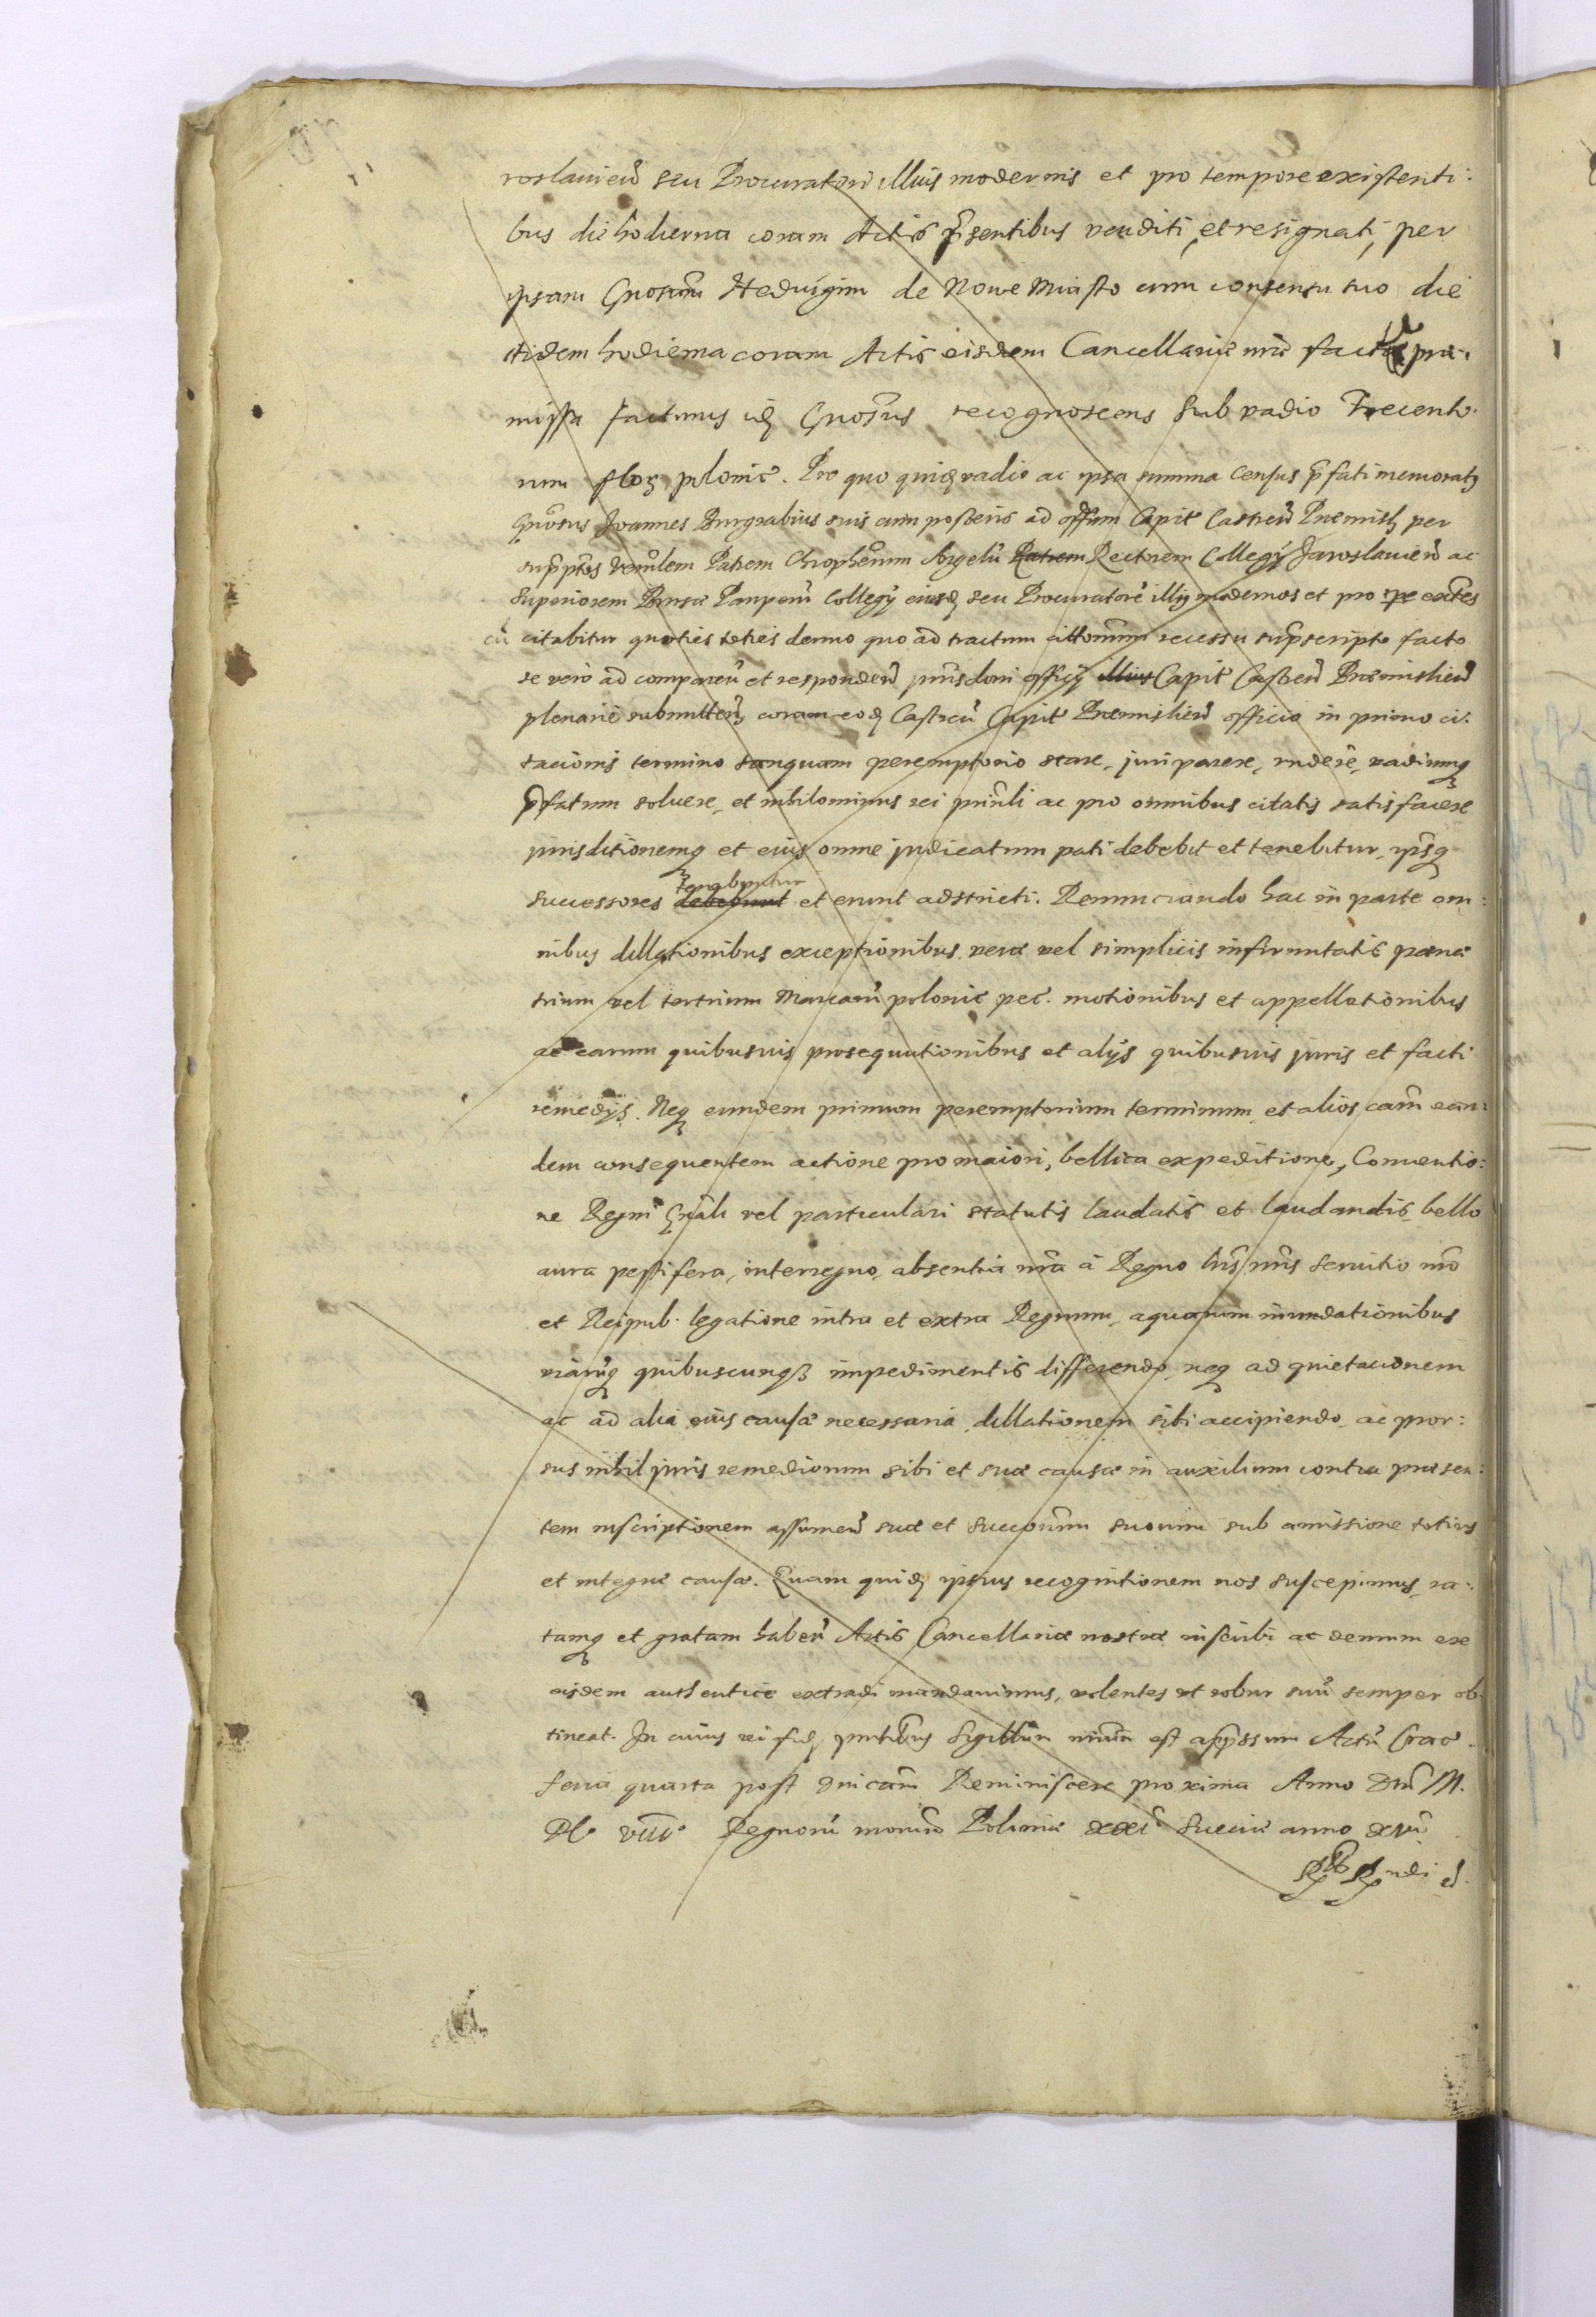 roslavien̄ seu Procuratori illius modernis et pro tempore existenti:
bus die hodierna coram Actis p̄sentibus venditi, et resignati, per
ipsam Gnosam̄ Hedvigim de Nowe Miasto cum consensu suo die
itidem hodierna coram Actis eisdem Cancellariæ nr̄æ præ:
missa facturus idē Gnosus recognoscens sub vadio Trecento:
rum flor polonic. Pro quo quidē vadio ac ipsa summa census p̄fati memoratꝫ
Gnōsus Joannes Burgrabius suis cum posteris ad offum Capit Castren̄ Præmislꝫ per
sup̄ptos Patrem Chrophorum Argelū Patrem Rectorem Collegÿ Jaroslavien̄ ac
Superiorem Bursæ Pauperū Collegÿ eiusdē seu Procuratorē illiꝫ modernos et pro tpe exn̄tes
cū citabitur quoties toties denuo quo ad tractum recessu sup̄scripto facto
se vero ad comparen̄ et responden̄ jurisdoni officÿ illius Capit Castren̄ Præmislien̄
plenarie submitten̄, coram eodē Castren̄ Capit Præmislien̄ officio in primo ci:
tacionis termino tanquam peremptorio stare, juri parere, rndere, vadiumq
p̄fatum solvere, et nihilominus rei prin̄li ac pro omnibus citatis satisfacere
jurisditionemq et eius omne judicatum pati debebit et tenebitur, ipsiq
successores debebunt tenebuntur et erunt adstricti. Renunciando hac in parte om:
nibus dillationibus exceptionibus veræ vel simplicis infirmitatis pæna
trium vel Marcarū polonic pec. motionibus et appellationibus
ac earum quibusvis prosequutionibus et alÿs quibusvis juris et facti
remedÿs. Neq eundem primum peremptorium terminum, et alios cām ean:
dem consequentem actione pro maiori, bellica expeditione, Conventio:
ne Regni Gn̄ali vel particulari statutis laudatis et laudandis, bello
aura pestifera, interregno, absentia nr̄a à Regno servitio nr̄o
et Reipub. legatione intra et extra Regnum, aquarum inundationibus
viarūq quibuscunqꝫ impedimentis differendo, neq ad quietacionem
ac ad alia eius causæ necessaria dillationem sibi accipiendo, ac pror:
sus nihil juris remediorum sibi et suæ causæ in auxilium contra præsen:
tem inscriptionem assumen̄ suæ et succorum̄ suorum sub amissione totius
et integræ causæ. Quam quidē ipsius recognitionem nos suscepimus, ra:
tamq et gratam haben̄ Actis Cancellariæ nostræ inscribi ac demum ex
eisdem authentice extradi mandavimus, volentes ut robur suū semper ob:
tineat. In cuius rei fidē pntibus Sigillum nr̄um est app̄ssum Actū Crac.
feria quarta post Dnicam̄ Reminiscere proxima Anno Dnī M.
DC VIII Regnorū nrorum̄ Poloniæ xxi Sueciæ anno xvi